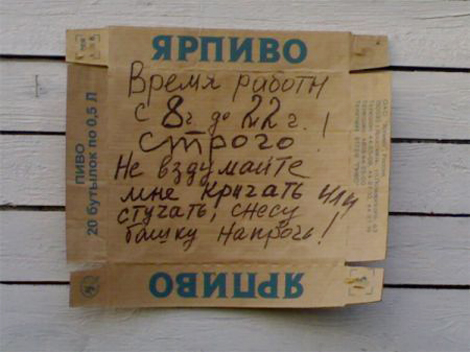 ЯРПИВО
Время работы
с 8ч. до 22ч.!
строго
Не вздумайте
мне кричать или
стучать, снесу
башку напрочь!
ПИВО
20 бутылок по 0,5 Л
ЯРПИВО